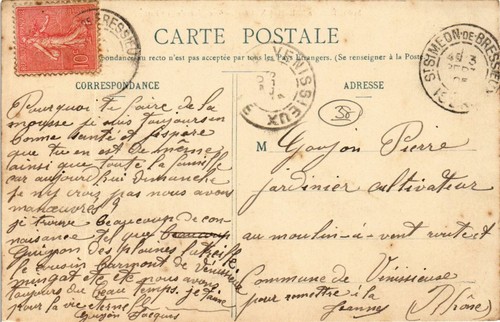 CARTE POSTALE
ondance au recto n'est pas acceptée par tous les Pays Etrangers. (Se renseigner à la Poste
CORRESPONDANCE
ADRESSE
ST SIMEON-DE-BRESSIEUX
VENISSIEUX
10
58
Pourquoi te faire de la
mousse je suis toujours en
bonne santé et espère
que tu en est de même
ainsi que toute la famille
car aujourd'hui dimanche
je m'y crois pas nous avons
manœuvres
je trouve beaucoup de con-
naisance tel que beaucoup
Guijon des plaines
le cousin de Vénissieux
et été nous avons
toujours du beau temps. je t'aime
pour la vie
Goujon Jacques
M Goujon Pierre
jardinier cultivateur
au moulin-a-vent route et
Commune de Vénissieuse
pour remettre à la
(Rhône)